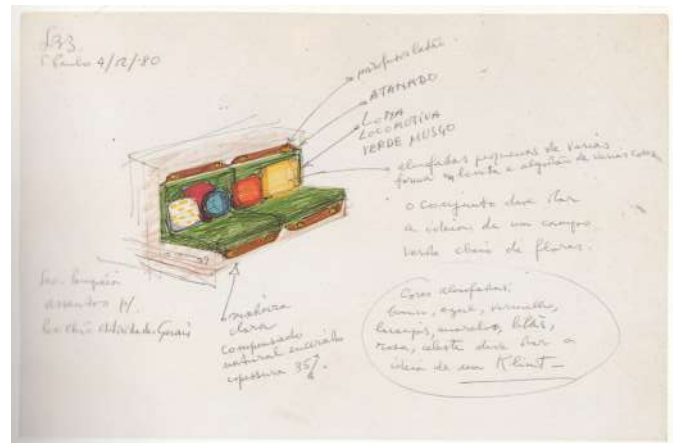 S Paulo 4/12/80
parafusos latão
ATANADO
LONA
LOCOMOTIVA
VERDE MUSGO
almofadas pequenas de varias
forma em lonita e algodão de varias cores
o conjunto deve dar
a ideia de um campo
verde cheio de flores.
Sesc Pompéia
assentos p/
Atividades Gerais
madeira
clara
compensado
natural encerado
espessura 35
Cores almofadas:
branco, azul, vermelho,
laranja, amarelo, lilás,
rosa, celeste deve dar a
ideia de um Klimt_